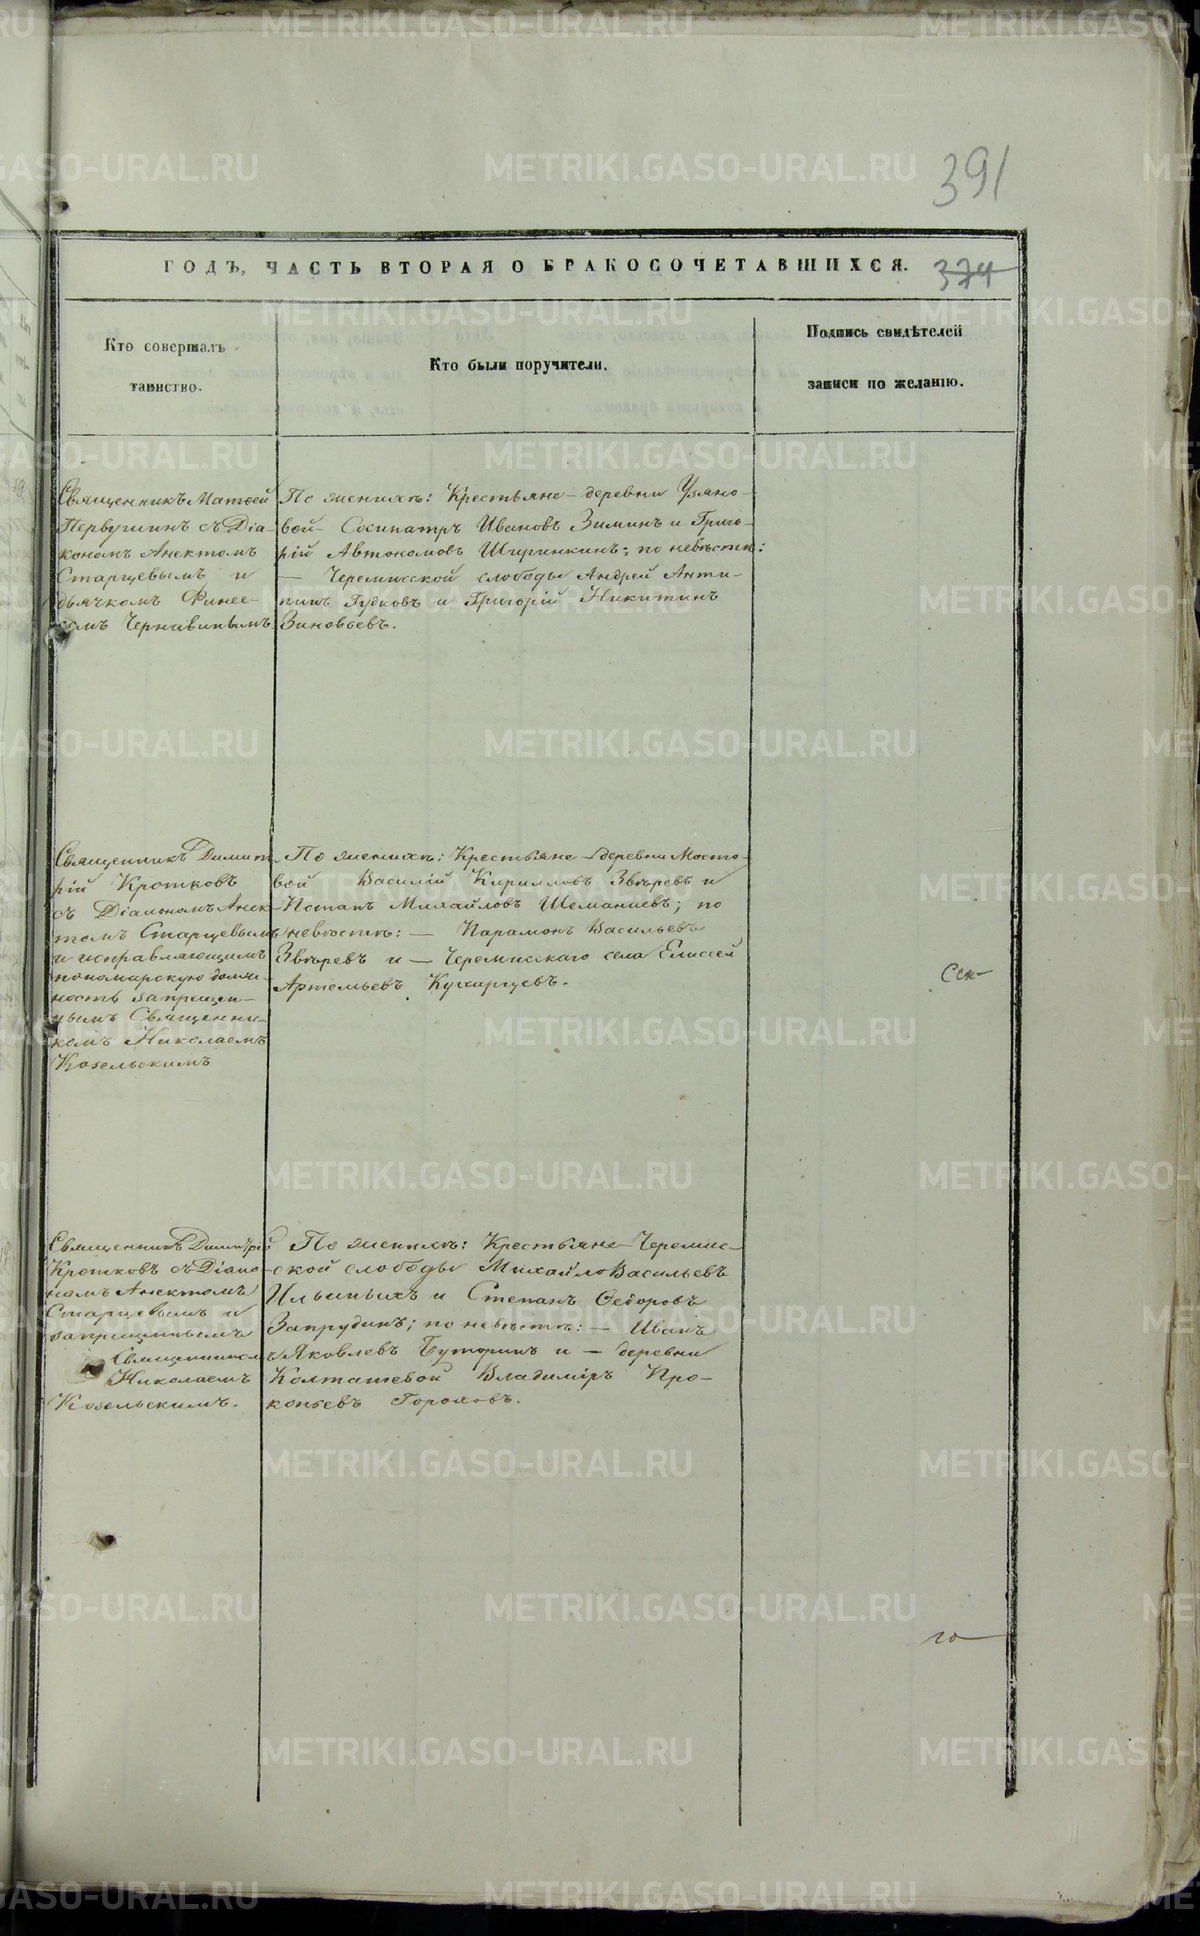 391
ГОДЪ, ЧАСТЬ ВТОРАЯ О БРАКОСОЧЕТАВШИХСЯ.
374
Кто совершалъ
таинство.
Кто были поручители.
Подпись свидѣтелей
записи по желанію.
Священникъ Матѳей
Первушинъ съ Діа-
кономъ Анектомъ
Старцевымъ и
дьячкомъ Финее-
сомъ Чернавинымъ
По женихѣ: Крестьяне – деревни Узяно-
вой – Сосипатръ Ивановъ Зиминъ и Григо-
рій Автономовъ Ширинкинъ; по невѣстѣ:
— Черемисской слободы Андрей Анти-
пинъ Гудковъ и Григорій Никитинъ
Зиновьевъ.
Священникъ Димит-
рій Кротковъ
съ Діакономъ Анек-
томъ Старцевымъ
и исправляющимъ
пономарскую долж-
ность запрещен-
нымъ Священни-
комъ Николаемъ
Козельскимъ
По женихѣ: Крестьяне – деревни Мосто-
вой Василій Кирилловъ Звѣревъ и
Потапъ Михайловъ Шеманаевъ; по
невѣстѣ: — Парамонъ Васильевъ
Звѣревъ и — Черемисскаго села Елисей
Артемьевъ Кухарцевъ.
Сек
Священникъ Димитрій
Кротковъ съ Діако-
номъ Анектомъ
Старцевымъ и
запрещеннымъ
Священником
Николаемъ
Козельскимъ.
По женихѣ: Крестьяне – Черемис-
ской слободы Михайло Васильевъ
Ильиныхъ и Степанъ Ѳедоровъ
Запрудинъ; по невѣстѣ: — Иванъ
Яковлевъ Буторинъ и — деревни
Колташевой Владиміръ Про-
копьевъ Гороховъ.
го
METRIKI.GASO-URAL.RU